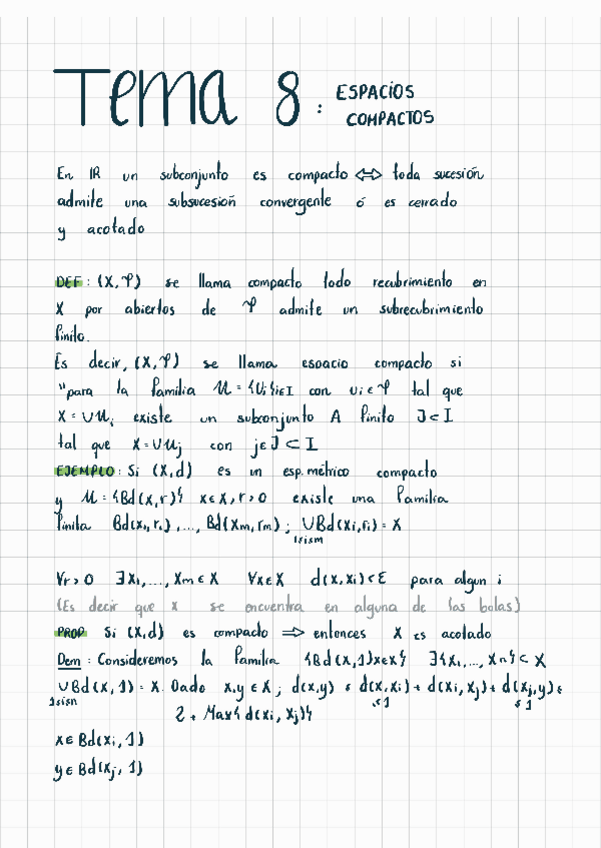 Tema 8: ESPACIOS
COMPACTOS
En IR un subconjunto es compacto ⟺ toda sucesión
admite una subsucesión convergente ó es cerrado
y acotado
DEF: (X, 𝒯) se llama compacto todo recubrimiento en
X por abiertos de 𝒯 admite un subrecubrimiento
finito.
Es decir, (X, 𝒯) se llama espacio compacto si
"para la familia 𝒰 = {Ui}i∈I con Ui ∈ 𝒯 tal que
X = ∪𝒰i existe un subconjunto A finito J ⊂ I
tal que X = ∪𝒰j con j∈J ⊂ I
EJEMPLO: Si (X,d) es un esp. métrico compacto
y 𝒰 = {Bd(x,r)} x∈X, r>0 existe una familia
finita Bd(x1,r1), ..., Bd(xm,rm); ∪Bd(xi,ri) = X
1≤i≤m
∀r>0 ∃x1,...,xm ∈ X ∀x∈X d(x,xi)<ε para algun i
(Es decir que x se encuentra en alguna de las bolas)
PROP Si (X,d) es compacto ⟹ entonces X es acotado
Dem: Consideremos la familia {Bd(x,1)x∈X} ∃{x1,..., xn} ⊂ X
∪Bd(x,1) = X. Dado x,y ∈ X; d(x,y) ≤ d(x,xi) + d(xi,xj) + d(xj,y) ≤
1≤i≤n ≤1 ≤1
2 + Max{d(xi, xj)}
x ∈ Bd(xi, 1)
y ∈ Bd(xj, 1)